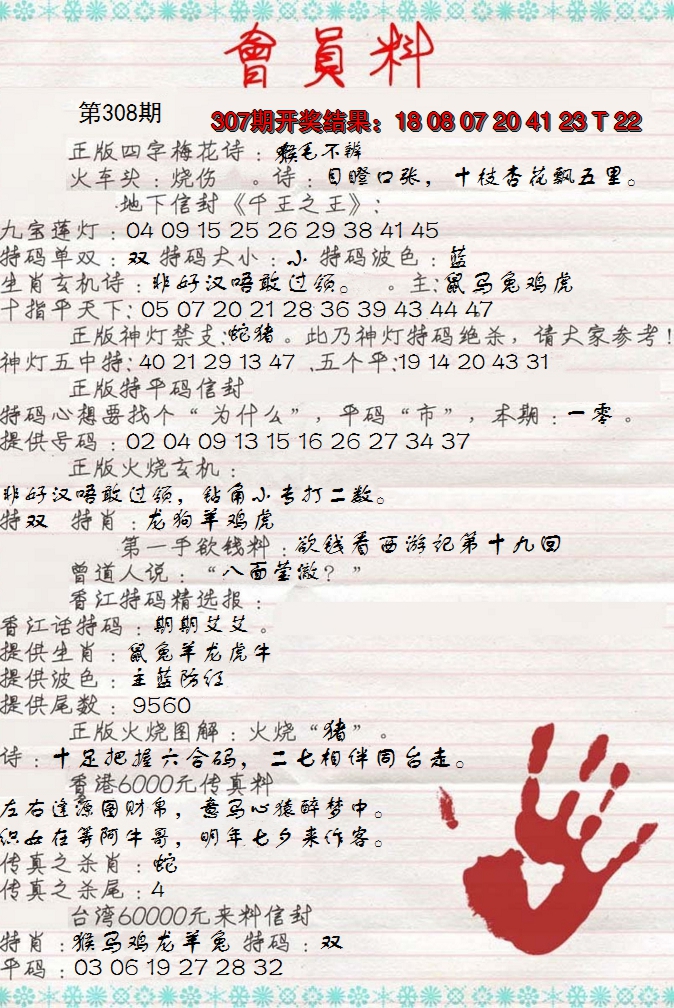 會員料
第308期
307期开奖结果：18 08 07 20 41 23 T 22
正版四字梅花诗：猴毛不辨
火车头：烧伤 。诗：目瞪口张，十枝杏花飘五里。
地下信封《千王之王》：
九宝莲灯：04 09 15 25 26 29 38 41 45
特码单双：双 特码大小：小 特码波色：蓝
生肖玄机诗：非好汉唔敢过领。 。主：鼠马兔鸡虎
十指平天下：05 07 20 21 28 36 39 43 44 47
正版神灯禁支：蛇猪。此乃神灯特码绝杀，请大家参考！
神灯五中特：40 21 29 13 47 、五个平：19 14 20 43 31
正版特平码信封
特码心想要找个“为什么”，平码“市”，本期：一零。
提供号码：02 04 09 13 15 16 26 27 34 37
正版火烧玄机：
非好汉唔敢过领，钻角小专打二数。
特双 特肖：龙狗羊鸡虎
第一手欲钱料：欲钱看西游记第十九回
曾道人说：“八面莹澈？”
香江特码精选报：
香江话特码：期期艾艾。
提供生肖：鼠兔羊龙虎牛
提供波色：主蓝防红
提供尾数：9560
正版火烧图解：火烧“猪”。
诗：十足把握六合码，二七相伴同台走。
香港6000元传真料
左右逢源图财帛，意马心猿醉梦中。
织女在等阿牛哥，明年七夕来作客。
传真之杀肖：蛇
传真之杀尾：4
台湾60000元来料信封
特肖：猴马鸡龙羊兔 特码：双
平码：03 06 19 27 28 32